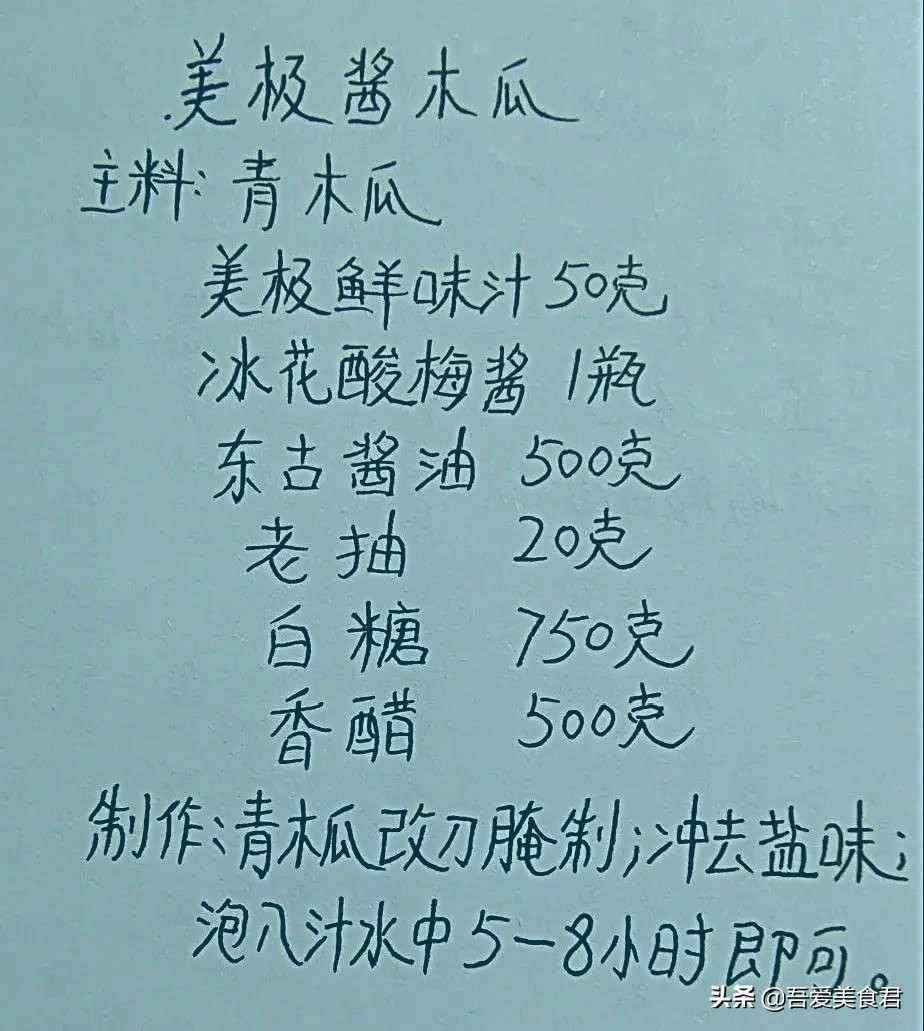 美极酱木瓜
主料:青木瓜
美极鲜味汁50克
冰花酸梅酱 1瓶
东古酱油 500克
老抽 20克
白糖 750克
香醋 500克
制作:青木瓜改刀腌制;冲去盐味;
泡入汁水中5-8小时即可。
头条 @吾爱美食君